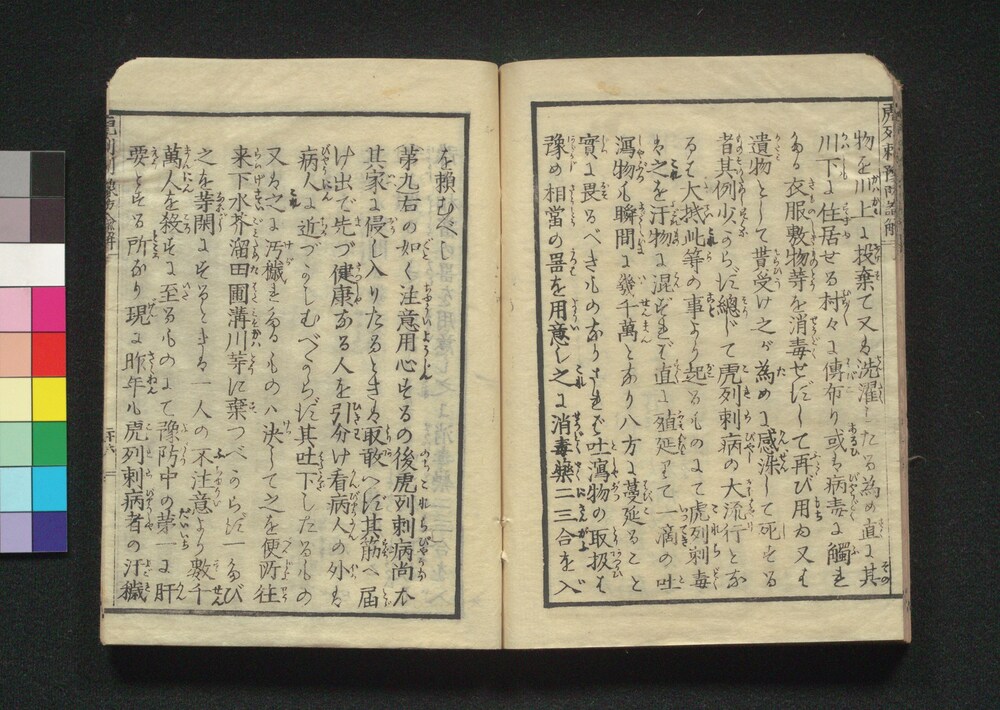 虎列剌豫防諭解
物を川上に投棄て又は洗濯したる為め直に其
川下に住居せる村々に傳布り或は病毒に觸れ
ある衣服敷物等を消毒せずして再び用ゐ又は
遺物として貰受け之が為めに感染して死する
者其例少からず總じて虎列剌病の大流行とな
るは大抵此等の事より起るものにて虎列剌毒
は之を汙物に混ずれば直に殖延して一滴の吐
瀉物も瞬間に幾千萬となり八方に蔓延ること
實に畏るべきものなりされば吐瀉物の取扱は
豫め相當の器を用意し之に消毒藥二三合を入
を頼むべし
第九右の如く注意用心するの後虎列剌病尚
其家に侵し入りたるときは取敢へず其筋へ届
け出で先づ健康なる人を引分け看病人の外は
病人に近づかしむべからず其吐下したるもの
又は之に汚穢れたるものハ決して之を便所往
来下水芥溜田圃溝川等に棄つべからず一たび
之を等閑にするときは一人の不注意より數千
萬人を殺すに至るものにて豫防中の第一に肝
要とする所なり現に昨年も虎列剌病者の汙穢